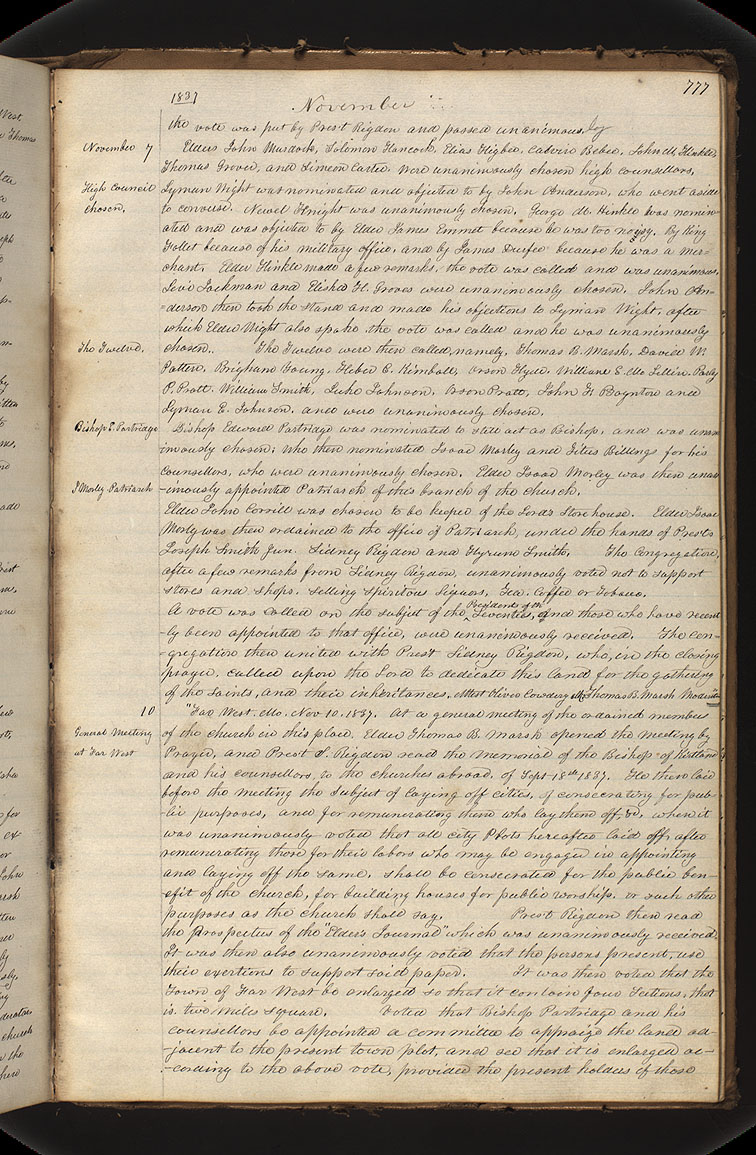 1837
November
777
the vote was put by Prest Rigdon and passed unanimously
November 7
Elders John Murdock, Solomon Hancock, Elias Higbee, Calvin Bebee, John M. Hinkle,
Thomas Grover, and Simeon Carter were unanimously chosen high counsellors,
High Council
Lyman Wight was nominated and objected to by John Anderson, who went aside
chosen.
to converse. Newel Knight was unanimously chosen. George M. Hinkle was nomin-
ated and was objected to by Elder James Emmet because he was too noisy. By King
Follet because of his military office, and by James Durfee because he was a mer-
chant. Elder Hinkle made a few remarks, the vote was called and was unanimous,
Levi Jackman and Elisha H. Groves were unanimously chosen. John An-
=derson then took the stand and made his objections to Lyman Wight, after
which Elder Wight also spake. the vote was called and he was unanimously
The Twelve.
chosen. The Twelve were then called, namely, Thomas B. Marsh, David W.
Patten, Brigham Young, Heber C. Kimball, Orson Hyde, William E. Mc Lellin. Parley
P. Pratt. William Smith, Luke Johnson. Orson Pratt, John F. Boynton and
Lyman E. Johnson, and were unanimously chosen.
Bishop E. Partridge
Bishop Edward Partridge was nominated to still act as Bishop, and was unan-
imously chosen; Who then nominated Isaac Morley and Titus Billings for his
Counsellors, who were unanimously chosen. Elder Isaac Morley was then unan
I Morly Patriarch
-imously appointed Patriarch of this branch of the church.
Elder John Corrill was chosen to be keeper of the Lord's Store house. Elder Isaac
Morly was then ordained to the office of Patriarch, under the hands of Prests
Joseph Smith Jun. Sidney Rigdon and Hyrum Smith. The Congregation,
after a few remarks from Sidney Rigdon, unanimously voted not to support
stores and shops. selling spiritous liquors, Tea. Coffee or Tobacco.
A vote was called on the subject of the Presidents of the Seventies, and those who have recent
-ly been appointed to that office, were unanimously received. The con-
-gregation then united with Prest Sidney Rigdon, who, in the closing
prayer, called upon the Lord to dedicate this land for the gathering
of the Saints, and their inheritances. Attest Oliver Cowdery Thomas B. Marsh Moderator
10
"Far West. Mo. Nov 10. 1837. At a general meeting of the ordained members
General Meeting
of the church in this place. Elder Thomas B. Marsh opened the meeting by
at Far West
Prayer, and Prest S. Rigdon read the Memorial of the Bishop of Kirtland
and his counsellors, to the churches abroad, of Sept 18th 1837. He then laid
before the meeting the subject of laying off cities, of consecrating for pub-
lic purposes, and for remunerating them who lay them off &c. when it
was unanimously voted that all city Plots hereafter laid off, after
remunerating those for their labors who may be engaged in appointing
and laying off the same, shall be consecrated for the public ben-
efit of the church, for building houses for public worship. or such other
purposes as the church shall say. Prest Rigdon then read
the prospectus of the "Elder's Journal" which was unanimously received.
It was then also unanimously voted that the persons present, use
their exertions to support said paper. It was then voted that the
town of Far West be enlarged so that it contain four Sections, that
is. two miles square. Voted that Bishop Partridge and his
counsellors be appointed a committee to appraize the land ad-
-jacent to the present town plot, and see that it is enlarged ac-
-cording to the above vote, provided the present holders of those